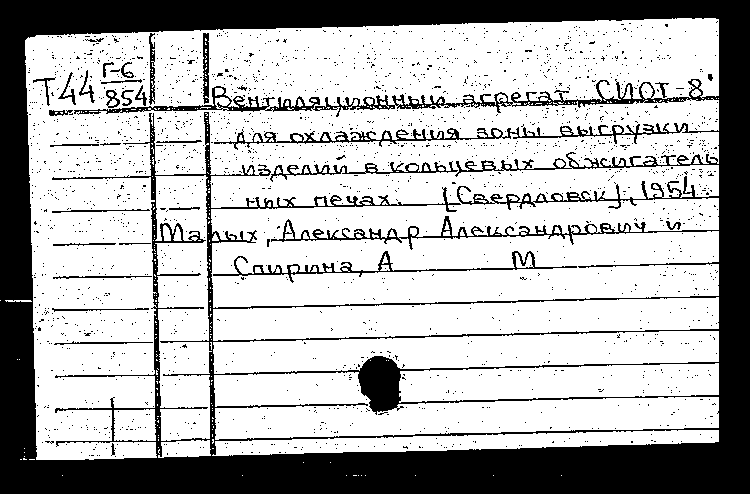 Т44 Г-6
854
Вентиляционный агрегат „СИОТ-8"
для охлаждения зоны выгрузки
изделий в кольцевых обжигатель
ных печах. [Свердловск], 1954.
Малых, Александр Александрович и
Спирина, А М